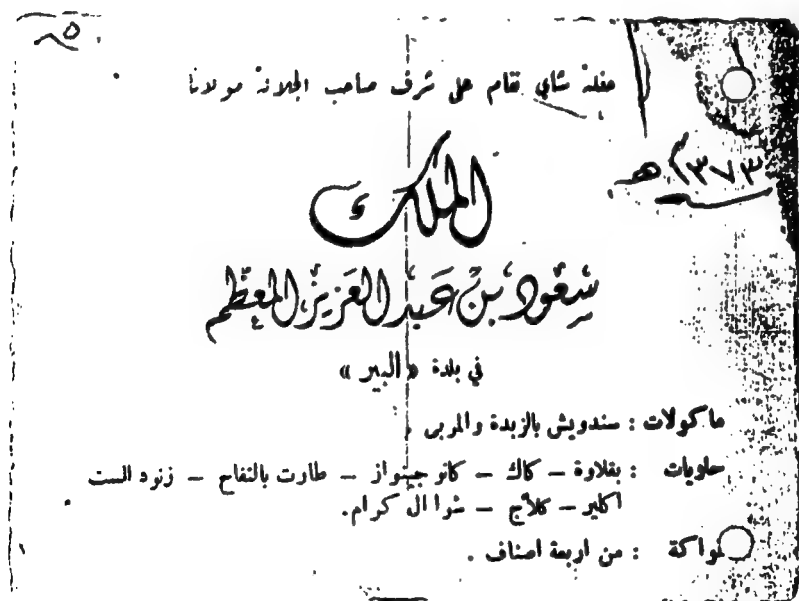 حفلة شاي تقام على شرف صاحب الجلالة مولانا
١٣٧٣ هـ
الملك
سعود بن عبد العزيز المعظم
في بلدة « البير »
ماكولات : سندويش بالزبدة والمربى
حلويات : بقلاوة – كاك – كاتو جينواز – طارت بالتفاح – زنود الست
اكلير – كلاج – شوا ال كرام.
فواكة : من اربعة اصناف .